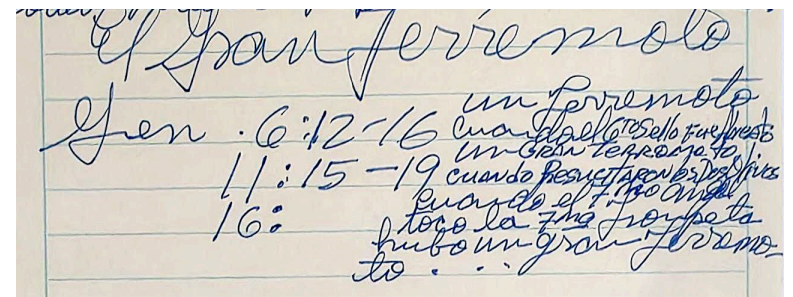 El Gran Terremoto
Gen . 6:12-16 un Terremoto
cuando el 6to Sello Fue abierto
11:15-19 un GRAN TERREMOTO
cuando Resucitaron los Dos Olivos
cuando el 7mo Angel
16: toco la 7ma Trompeta
hubo un gran Terremo-
to . . .